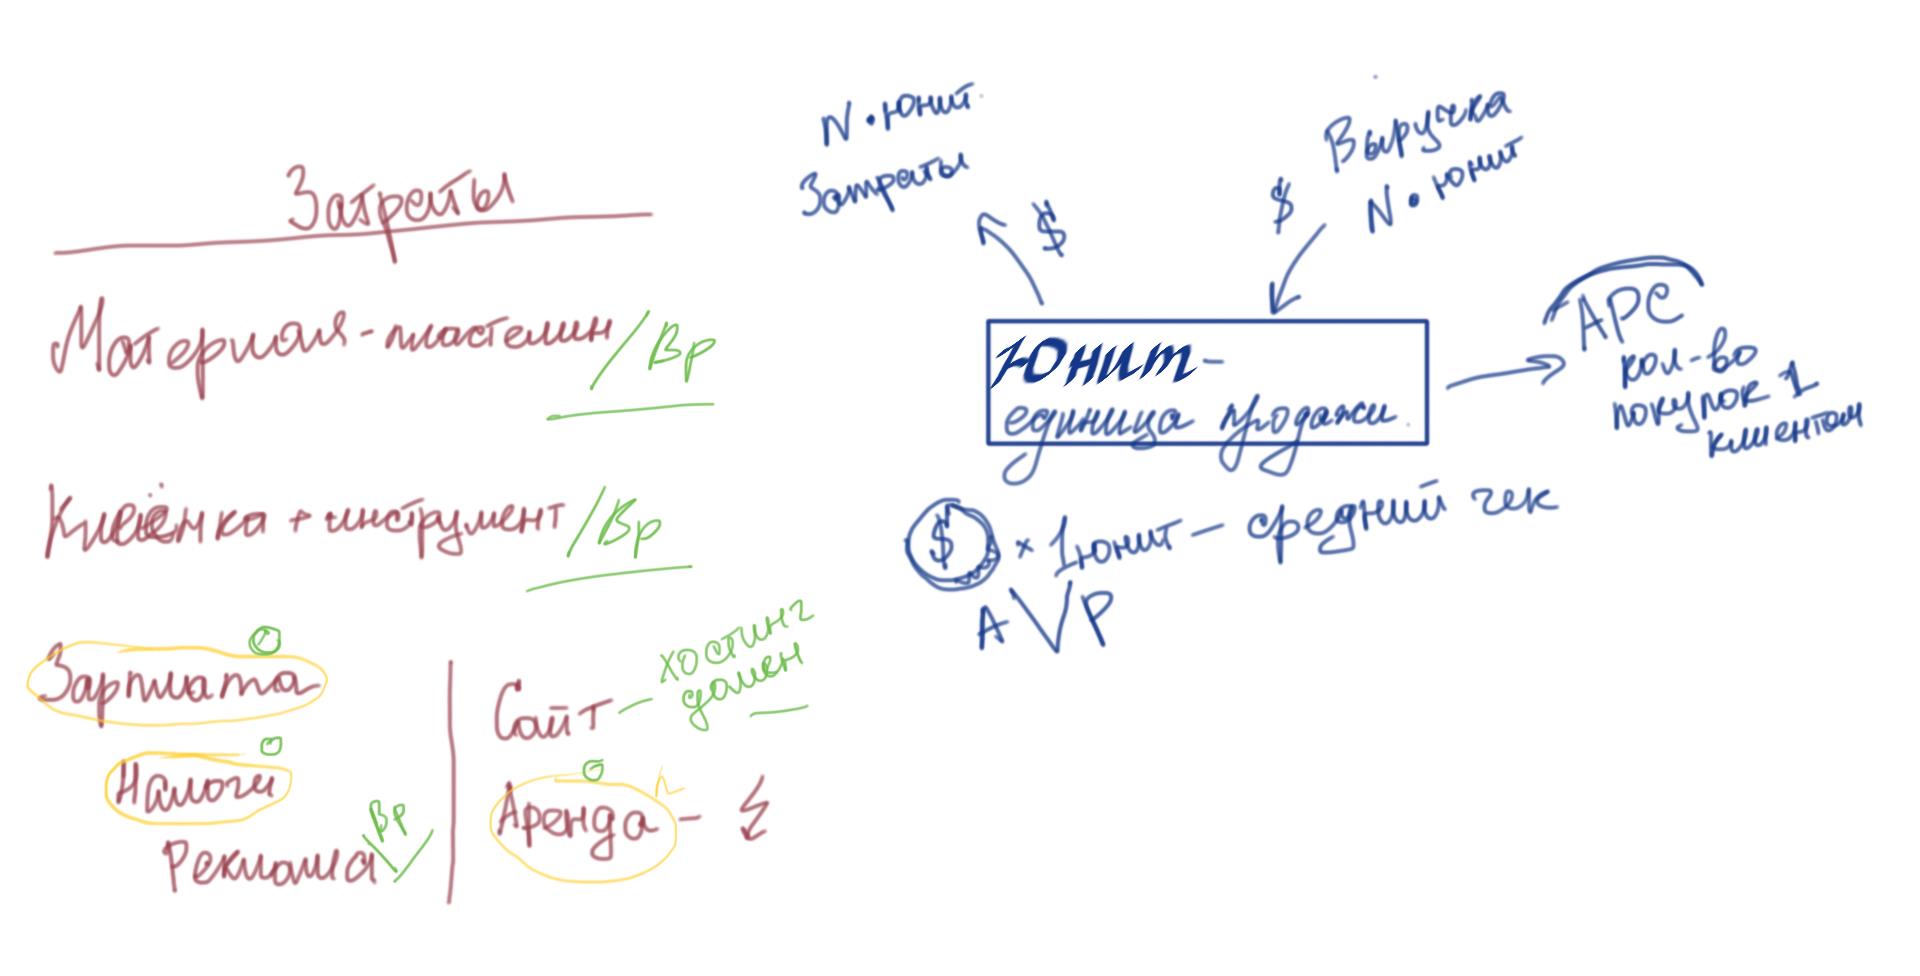 Затраты
Материал - пластелин / Вр
Клеёнка + инструмент / Вр
Зарплата
Налоги
Реклама Вр
Сайт - хостинг
домен -
Аренда -
N • юнит
Затраты
$
$
Выручка
N • юнит
Юнит -
единица продажи
APC
кол-во
покупок 1
клиентом
$ × 1 юнит - средний чек
AVP